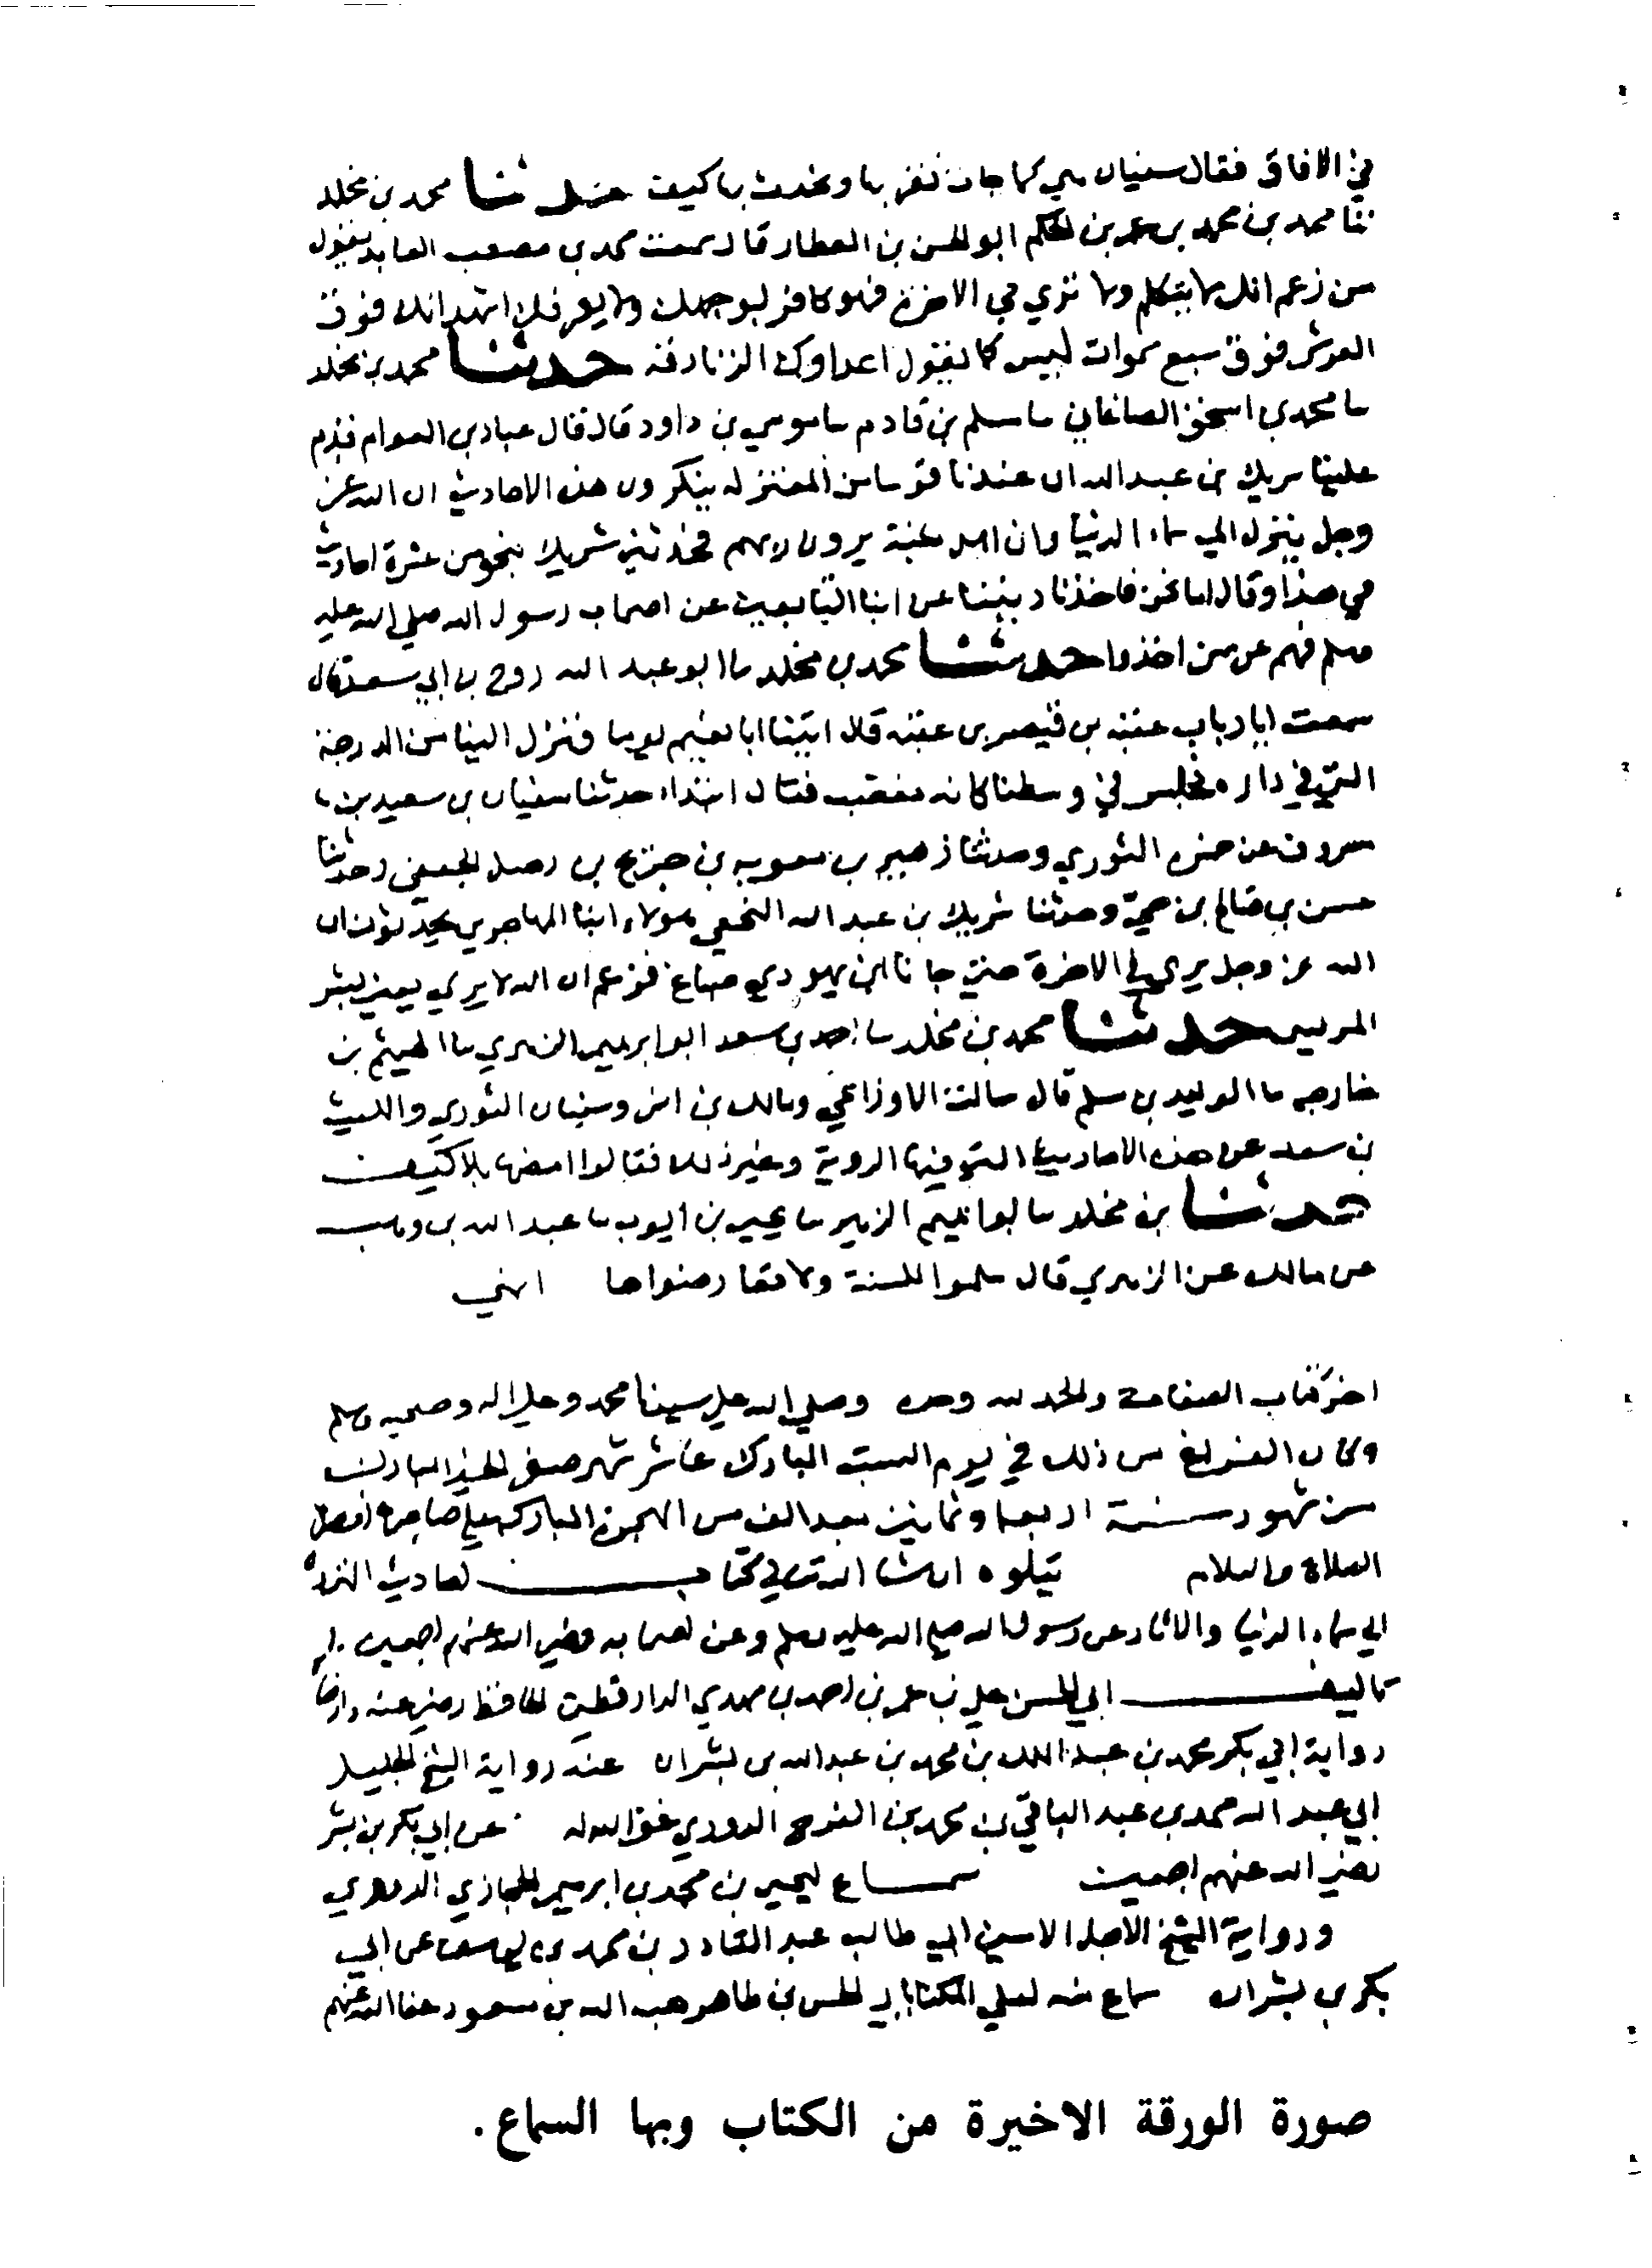 في الافاق فقال سفيان هي كما جات نقر بها ونحدث بلا كيف حدثنا محمد بن مخلد
ثنا محمد بن محمد بن عمر بن الحكم ابو الحسن بن العطار قال سمعت محمد بن مصعب العابد يقول
من زعم انك لا يتكلم ولا تري في الاخرة فهو كافر بوجهك ولا يعرفك اشهد انك فوق
العرش فوق سبع سموات ليس كما يقول اعداوك الزنادقة حدثنا محمد بن مخلد
سا محمد بن اسحق الصاغاني سا سلم بن قادم سا موسي بن داود قال قال عباد بن العوام قدم
علينا شريك بن عبد الله ان عندنا قوما من المعتزله ينكرون هذه الاحاديث ان الله عز
وجل ينزل الي سماء الدنيا وان اهل الجنة يرون ربهم فحدثني شريك بنحو من عشرة احاديث
في هذا وقال اما نحن فاخذنا ديننا عن ابنا التابعين عن اصحاب رسول الله صلي الله عليه
وسلم فهم عن من اخذوا حدثنا محمد بن مخلد سا ابو عبد الله روح بن ابي سعد قال
سمعت ابا رباب عقبه بن قبيصر بن عقبه قال اتينا ابا نعيم يوما فنزل الينا من الدرجة
التي في داره فجلس في وسطنا كانه مغضب فقال ابتداء حدثنا سفيان بن سعيد بن
مسروق عن الثوري وحدثنا زهير بن معويه بن خديج بن رحيل الجعفي وحدثنا
حسن بن صالح بن حيّ وحدثنا شريك بن عبد الله النخعي هولاء ابنا المهاجرين يحدثون ان
الله عز وجل يري في الاخرة حتي جانا ابن يهودي صباغ فزعم ان الله لا يري يعني بشر
المريس حدثنا محمد بن مخلد سا احمد بن سعد ابو ابراهيم الزهري سا الهيثم بن
خارجه سا الوليد بن مسلم قال سالت الاوزاعي ومالك بن انس وسفيان الثوري والليث
بن سعد عن هذه الاحاديث التي فيها الروية وغير ذلك فقالوا امضها بلا كيف
حدثنا بن مخلد سا ابو نعيم الزبير سا يحيي بن ايوب سا عبد الله بن وهب
عن مالك عن الزهري قال سلموا للسنة ولا تعارضوها انتهي
اخر كتاب الصفات والحمد لله وحده وصلي الله علي سيدنا محمد وعلي اله وصحبه وسلم
وكان الفراغ من ذلك في يوم السبت المبارك عاشر شهر صفر الخير المبارك
من شهور سنة اربعا وثمانين بعد الف من الهجرة المباركه علي صاحبها افضل
الصلاة والسلام يتلوه ان شا الله تعالي كتاب احاديث النزول
الي سماء الدنيا والاثار عن رسول الله صلي الله عليه وسلم وعن اصحابه رضي الله عنهم اجمعين
تاليف ابي الحسن علي بن عمر بن احمد بن مهدي الدارقطني الحافظ رضي عنه وارضاه
رواية ابي بكر محمد بن عبد الملك بن محمد بن عبد الله بن بشران عنه رواية الشيخ الجليل
ابي عبد الله محمد بن عبد الباقي بن محمد بن الفرج الدوري غفر الله له عن ابي بكر بن بشر
رضي الله عنهم اجمعين سماع ليحيي بن محمد بن ابرهيم الدوري
ورواية الشيخ الاجل الامين ابي طالب عبد القادر بن محمد بن يوسف عن ابي
بكر بن بشران سماع منه لعلي الحسن بن طاهر هبه الله بن مسعود عفا الله عنهم
صورة الورقة الاخيرة من الكتاب وبها السماع.